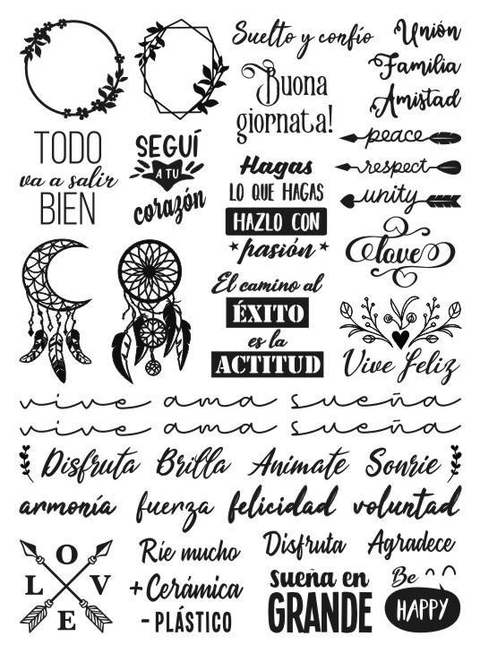 Suelto y confío
Unión
Familia
Amistad
Buona
giornata!
peace
respect
unity
TODO
va a salir
BIEN
SEGUÍ
A TU
corazón
Hagas
LO QUE HAGAS
HAZLO CON
pasión
love
El camino al
ÉXITO
es la
ACTITUD
Vive feliz
vive ama sueña
vive ama sueña
Disfruta Brilla Animate Sonríe
armonía fuerza felicidad voluntad
L O V E
Ríe mucho
+ Cerámica
- PLÁSTICO
Disfruta
Agradece
Sueña en
GRANDE
Be
HAPPY